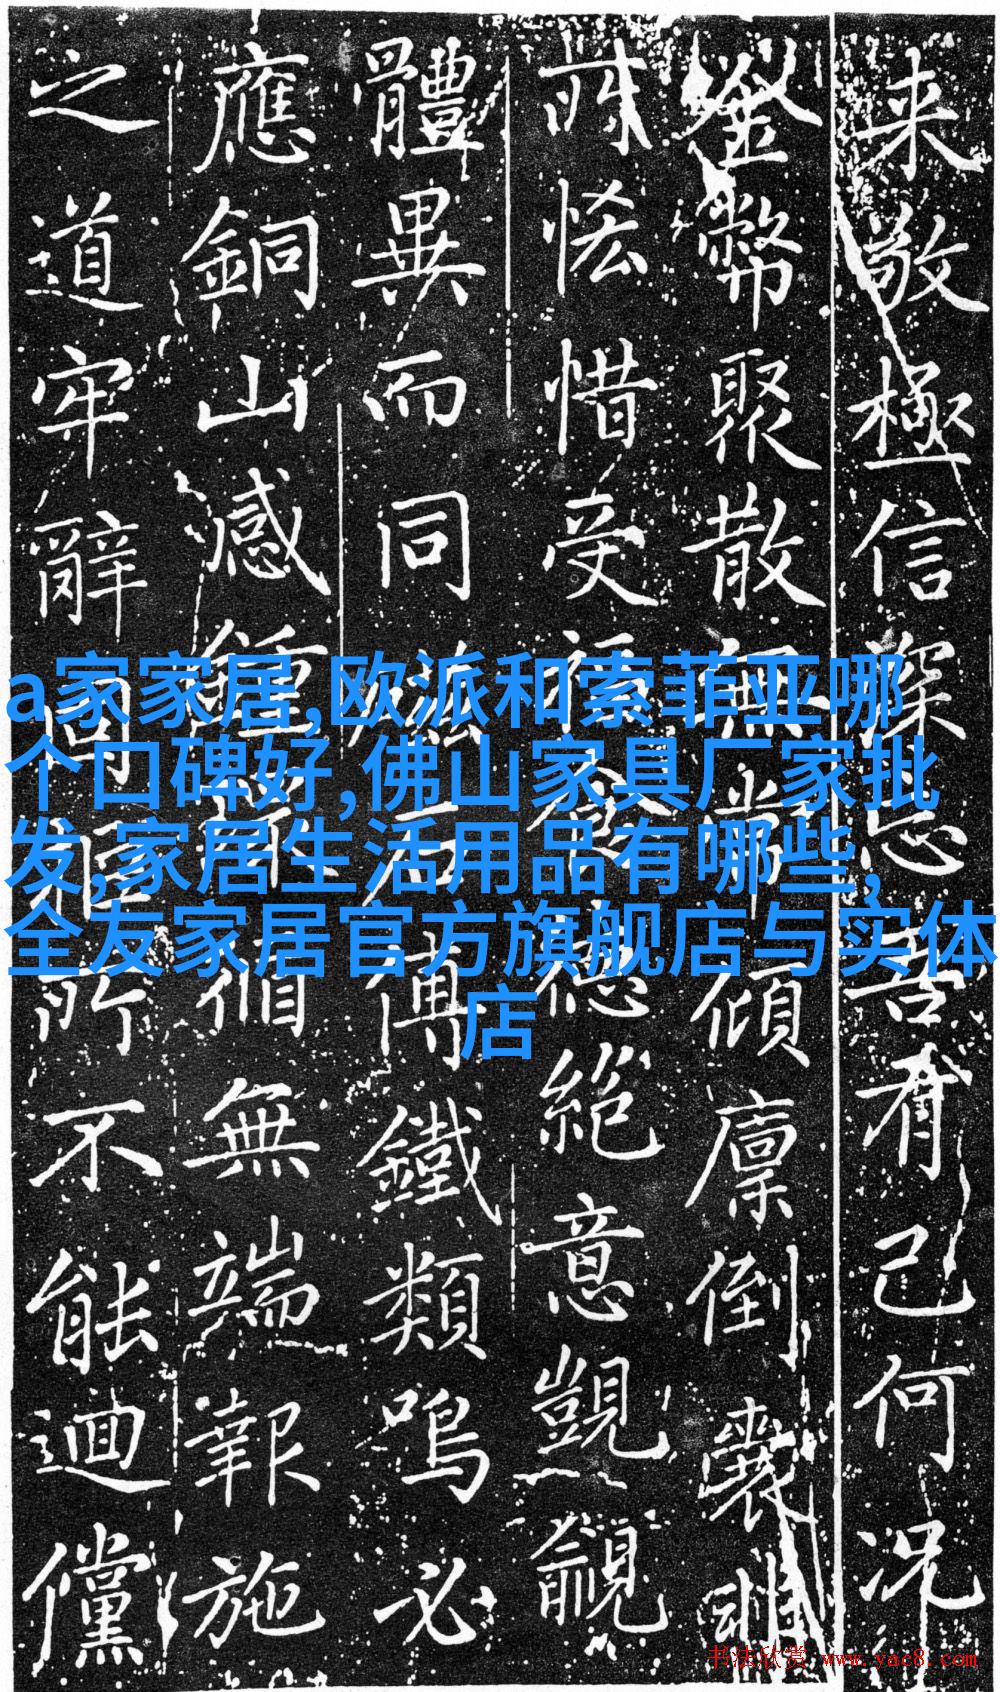 来敬極信深心吾有己何况
金幣聚散無常傾廪倒囊雖
所恡惜受德絶意覬覦
體異而同石傅鐵類鳴必
應銅山感鍾循無端報施
之道牢辭固拒所不能迴儻
a家家居,欧派和索菲亚哪
个口碑好,佛山家具厂家批
发,家居生活用品有哪些,
全友家居官方旗舰店与实体
店
书法欣赏 www.yac8.com